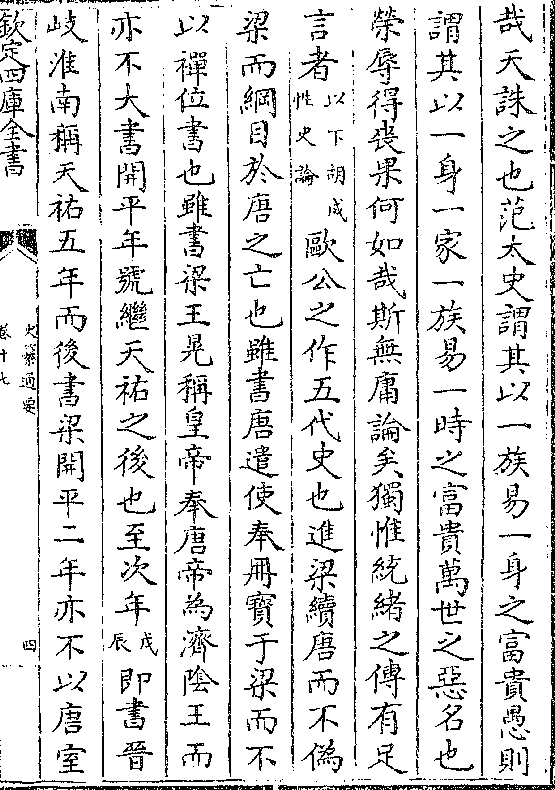 哉天誅之也范太史謂其以一族易一身之富貴愚則
謂其以一身一家一族易一時之富貴萬世之惡名也
榮辱得喪果何如哉斯無庸論矣獨惟統緒之傳有足
言者以下胡成性史論歐公之作五代史也進梁續唐而不偽
梁而綱目於唐之亡也雖書唐遣使奉冊寳于梁而不
以禪位書也雖書梁王晃稱皇帝奉唐帝為濟隂王而
亦不大書開平年號繼天祐之後也至次年戊辰即書晉
岐淮南稱天祐五年而後書梁開平二年亦不以唐室
欽定四庫全書
史纂通要
卷十七
四